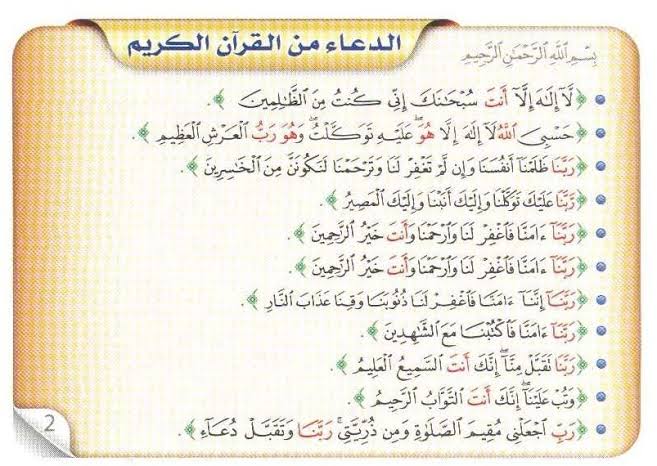 الدعاء من القرآن الكريم
بِسْمِ اللَّهِ الرَّحْمَٰنِ الرَّحِيمِ
﴿لَّآ إِلَٰهَ إِلَّآ أَنتَ سُبْحَٰنَكَ إِنِّى كُنتُ مِنَ ٱلظَّٰلِمِينَ﴾.
﴿حَسْبِىَ ٱللَّهُ لَآ إِلَٰهَ إِلَّا هُوَ ۖ عَلَيْهِ تَوَكَّلْتُ ۖ وَهُوَ رَبُّ ٱلْعَرْشِ ٱلْعَظِيمِ﴾.
﴿رَبَّنَا ظَلَمْنَآ أَنفُسَنَا وَإِن لَّمْ تَغْفِرْ لَنَا وَتَرْحَمْنَا لَنَكُونَنَّ مِنَ ٱلْخَٰسِرِينَ﴾.
﴿رَّبَّنَا عَلَيْكَ تَوَكَّلْنَا وَإِلَيْكَ أَنَبْنَا وَإِلَيْكَ ٱلْمَصِيرُ﴾.
﴿رَبَّنَآ ءَامَنَّا فَٱغْفِرْ لَنَا وَٱرْحَمْنَا وَأَنتَ خَيْرُ ٱلرَّٰحِمِينَ﴾.
﴿رَبَّنَآ ءَامَنَّا فَٱغْفِرْ لَنَا وَٱرْحَمْنَا وَأَنتَ خَيْرُ ٱلرَّٰحِمِينَ﴾.
﴿رَبَّنَآ إِنَّنَآ ءَامَنَّا فَٱغْفِرْ لَنَا ذُنُوبَنَا وَقِنَا عَذَابَ ٱلنَّارِ﴾.
﴿رَبَّنَآ ءَامَنَّا فَٱكْتُبْنَا مَعَ ٱلشَّٰهِدِينَ﴾.
﴿رَبَّنَا تَقَبَّلْ مِنَّآ ۖ إِنَّكَ أَنتَ ٱلسَّمِيعُ ٱلْعَلِيمُ﴾.
﴿وَتُبْ عَلَيْنَآ ۖ إِنَّكَ أَنتَ ٱلتَّوَّابُ ٱلرَّحِيمُ﴾.
﴿رَبِّ ٱجْعَلْنِى مُقِيمَ ٱلصَّلَوٰةِ وَمِن ذُرِّيَّتِى ۚ رَبَّنَا وَتَقَبَّلْ دُعَآءِ﴾.
2